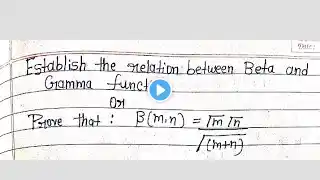 Establish the relation between Beta and
Gramma funct
OR
Prove that : β(m,n) = Γm Γn / Γ(m+n)